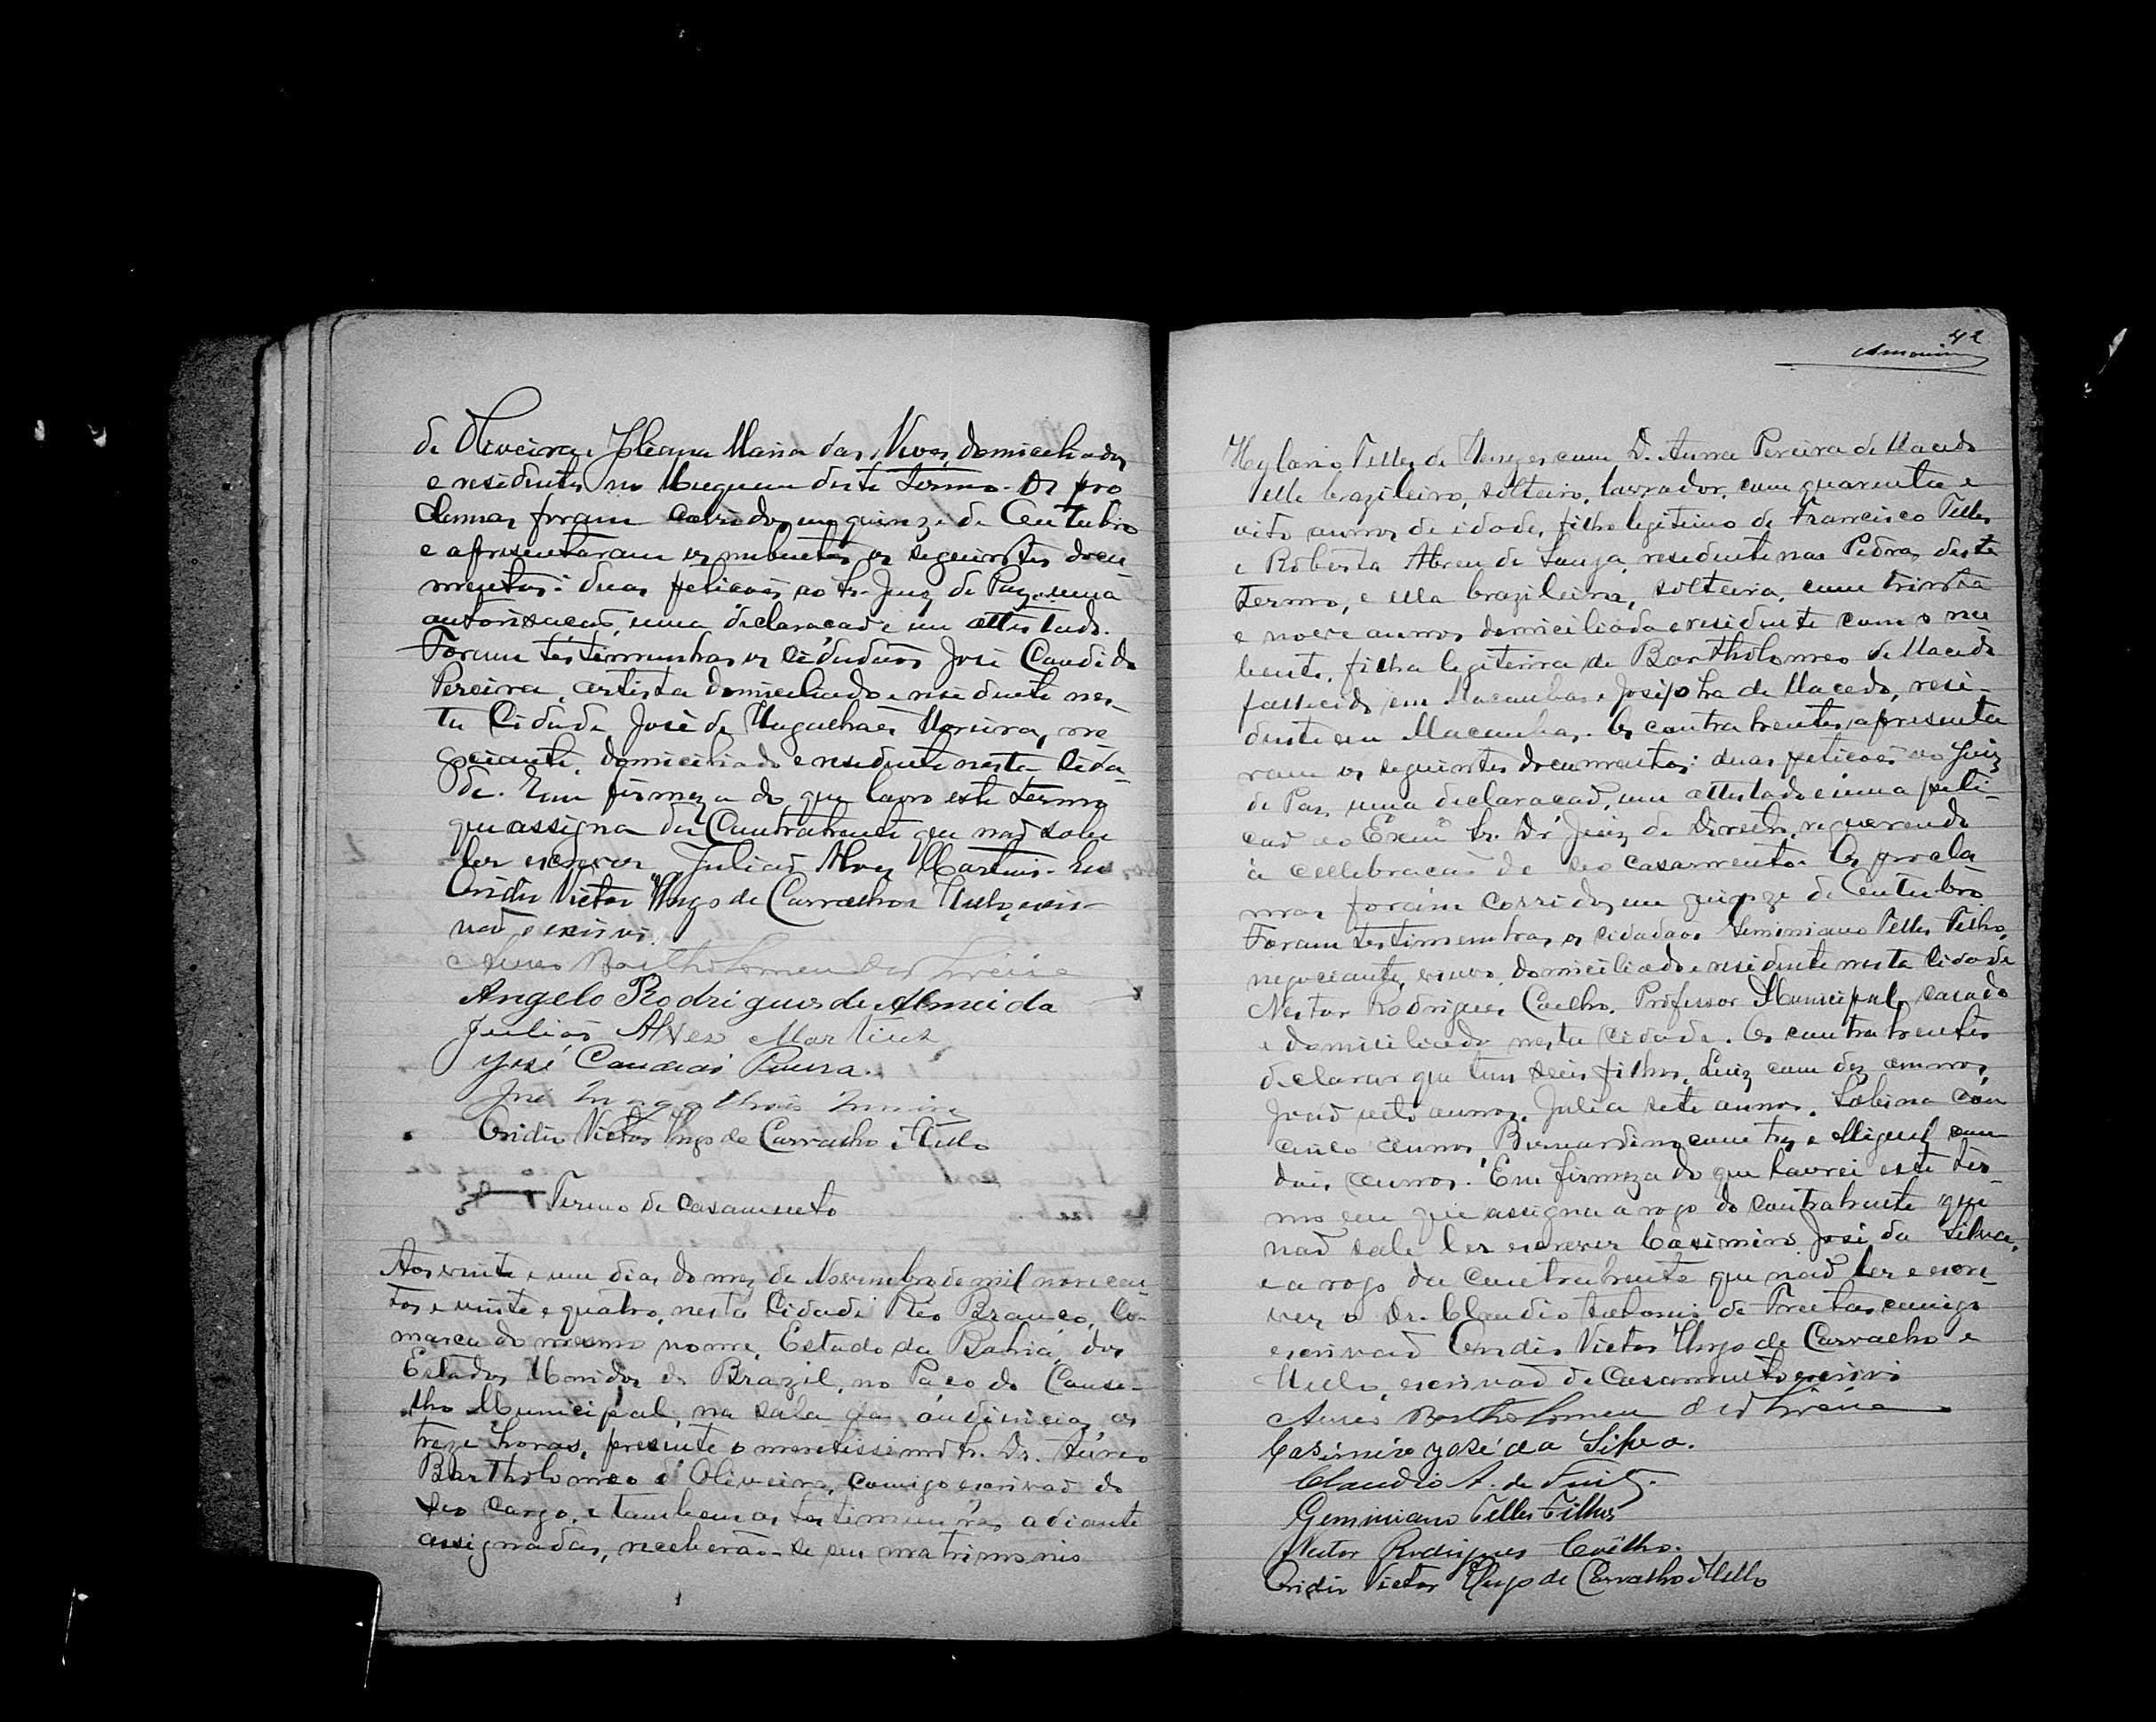 de Oliveira e Maria das Neves, domiciliados
e residentes no deste termo. Os pro
clamas foram corridos em quinze de Outubro
e apresentaram os nubentes os seguintes docu-
mentos: duas petições ao Sr. Juiz de Paz, uma
autorisacaõ, uma declaracaõ e um attestado.
Foram testemunhas os cidadãos José Candido
Pereira, artista domiciliado e residente nes-
ta Cidade, José de Magalhães Moreira, ne
gociante, domiciliado e residente nesta Cida-
de. Em firmeza do que lavro este termo
que assigna da Contrahente que naõ sabe
ler escrever Julião Alves Martins. Eu
Victor Hugo de Carvalho e Mello, escri-
vaõ o escrivi.
Aureo Bartholomeu de Oliveira
Angelo Rodrigues de Almeida
Julião Alves Martins
José Candido Pereira.
José Magalhães
Victor Hugo de Carvalho e Mello
Termo de Casamento
Aos vinte e um dias do mez de Novembro de mil novecen-
tos e vinte e quatro, nesta Cidade Rio Branco, Co-
marca do mesmo nome, Estado da Bahia, dos
Estados Unidos do Brazil, no Paço do Conse-
lho Municipal, na sala das audiencias, as
treze horas, presente o meretissimo Sr. Dr. Aureo
Bartholomeo d'Oliveira, comigo escrivaõ do
seo cargo, e tambem as testemunhas adiante
assignadas, receberão-se em matrimonio
42
Amorim
Hylario Telles de Menezes com D. Anna Pereira de Macedo
elle brazileiro, solteiro, lavrador, com quarenta e
oito annos de idade, filho legitimo de Francisco Telles
e Roberta Abreu de Souza, residente nas Pedras deste
termo, e ella brazileira, solteira, com trinta
e nove annos domiciliada e residente com o nu
bente, filha legitima de Bartholomeo de Macedo
fallecido em Macaubas e Josepha de Macedo, resi-
dente em Macaubas. Os contrahentes apresenta
ram os seguintes documentos: duas petições ao Juiz
de Paz, uma declaracaõ, um attestado e uma peti-
caõ ao Exmº Sr. Dr Juiz de Direito, requerendo
a cellebracaõ de seo casamento. Os procla
mas foram corridos em quinze de Outubro
Foram testimunhas os cidadãos Geminiano Telles Filho,
negociante, viuvo, domiciliado e residente nesta Cidade
Nestor Rodrigues Coelho, Professor Municipal, casado
e domiciliado nesta Cidade. Os contrahentes
declarar que tem seis filhos, Luiz com dez annos,
João oito annos, Julia sete annos, Sabina com
cinco annos Bernardino com tres e Miguel com
dois annos. Em firmeza do que lavrei este ter-
mo em que assigna a rogo do contrahente que
naõ sabe ler escrever Casimiro José da Silva,
e a rogo da contrahente que naõ ler e escre-
ver o Dr. Claudio Antonio de Freitas comigo
escrivaõ Victor Hugo de Carvalho e
Mello, escrivaõ de Casamento escrivi
Aureo Bartholomeu de Oliveira
Casimiro José da Silva.
Claudio A. de
Geminiano Telles Filho
Nestor Rodrigues Coêlho.
Victor Hugo de Carvalho e Mello